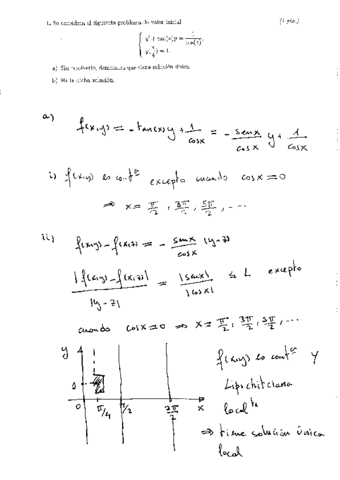 1. Se considera el siguiente problema de valor inicial (1 pto.)
y' + tan(x)y = 1/cos(x),
y(π/4) = 1.
a) Sin resolverlo, demuestra que tiene solución única.
b) Halla dicha solución.
a)
f(x,y) = -tan(x) y + 1/cosx = - senx/cosx y + 1/cosx
i) f(x,y) es contª excepto cuando cosx = 0
⇒ x = π/2, 3π/2, 5π/2, ...
ii) f(x,y) - f(x,z) = - senx/cosx (y-z)
|f(x,y) - f(x,z)|/|y-z| = |senx|/|cosx| ≤ L excepto
cuando cosx = 0 ⇒ x = π/2, 3π/2, 5π/2, ...
y
1
0 π/4 π/2 3π/2 x
f(x,y) es contª y
Lipschitciana
local
⇒ tiene solución única
local